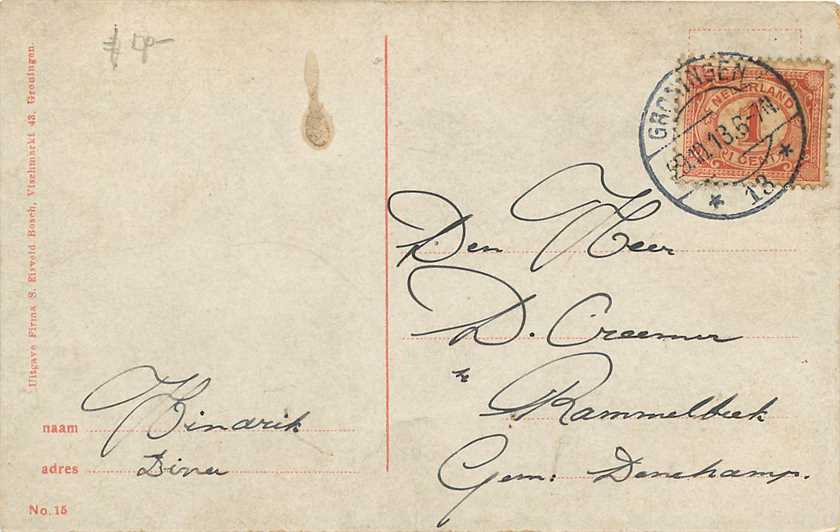 Uitgave Firma S. Eisveld Bosch, Vischmarkt 43, Groningen.
GRONINGEN
.13.6-7N
* 13 *
NEDERLAND
1
1 CENT
Den Heer
D. Creemer
te
Rammelbeek
Gem: Denekamp.
naam Hindrik
adres Dina
No. 15